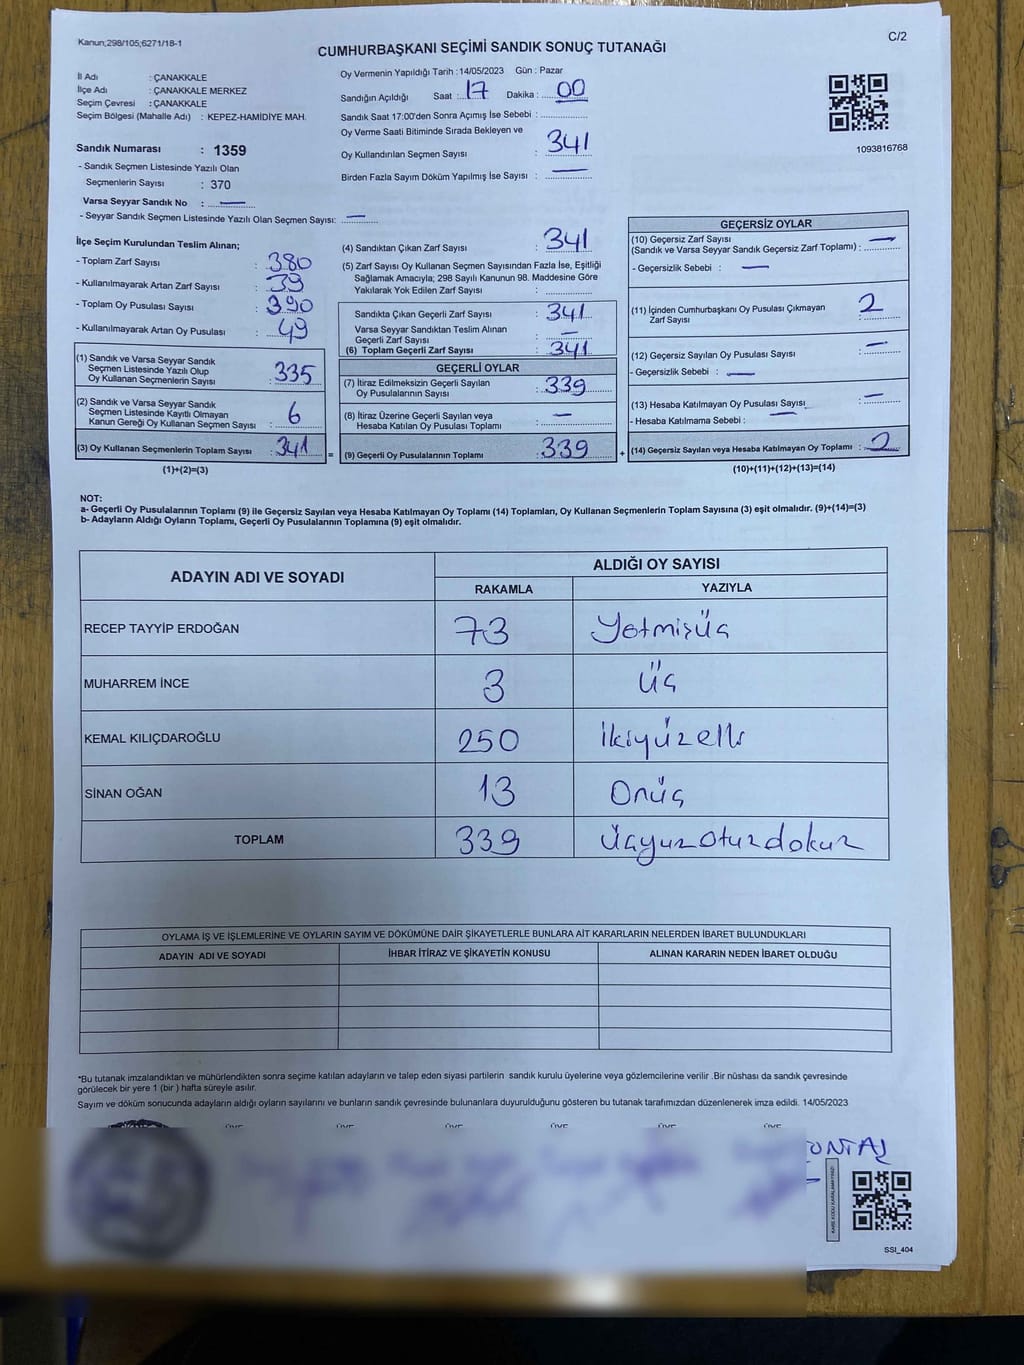 Kanun;298/105;6271/18-1
C/2
CUMHURBAŞKANI SEÇİMİ SANDIK SONUÇ TUTANAĞI
İl Adı : ÇANAKKALE
İlçe Adı : ÇANAKKALE MERKEZ
Seçim Çevresi : ÇANAKKALE
Seçim Bölgesi (Mahalle Adı) : KEPEZ-HAMİDİYE MAH.
Sandık Numarası : 1359
- Sandık Seçmen Listesinde Yazılı Olan
Seçmenlerin Sayısı : 370
Varsa Seyyar Sandık No : —
- Seyyar Sandık Seçmen Listesinde Yazılı Olan Seçmen Sayısı: —
Oy Vermenin Yapıldığı Tarih : 14/05/2023 Gün : Pazar
Sandığın Açıldığı Saat : 17 Dakika : 00
Sandık Saat 17:00'den Sonra Açımış İse Sebebi :
Oy Verme Saati Bitiminde Sırada Bekleyen ve
Oy Kullandırılan Seçmen Sayısı : 341
Birden Fazla Sayım Döküm Yapılmış İse Sayısı : —
1093816768
İlçe Seçim Kurulundan Teslim Alınan;
- Toplam Zarf Sayısı : 380
- Kullanılmayarak Artan Zarf Sayısı : 39
- Toplam Oy Pusulası Sayısı : 390
- Kullanılmayarak Artan Oy Pusulası : 49
(1) Sandık ve Varsa Seyyar Sandık
Seçmen Listesinde Yazılı Olup
Oy Kullanan Seçmenlerin Sayısı : 335
(2) Sandık ve Varsa Seyyar Sandık
Seçmen Listesinde Kayıtlı Olmayan
Kanun Gereği Oy Kullanan Seçmen Sayısı : 6
(3) Oy Kullanan Seçmenlerin Toplam Sayısı : 341
(1)+(2)=(3)
(4) Sandıktan Çıkan Zarf Sayısı : 341
(5) Zarf Sayısı Oy Kullanan Seçmen Sayısından Fazla İse, Eşitliği
Sağlamak Amacıyla; 298 Sayılı Kanunun 98. Maddesine Göre
Yakılarak Yok Edilen Zarf Sayısı :
Sandıkta Çıkan Geçerli Zarf Sayısı : 341
Varsa Seyyar Sandıktan Teslim Alınan
Geçerli Zarf Sayısı : —
(6) Toplam Geçerli Zarf Sayısı : 341
GEÇERLİ OYLAR
(7) İtiraz Edilmeksizin Geçerli Sayılan
Oy Pusulalarının Sayısı : 339
(8) İtiraz Üzerine Geçerli Sayılan veya
Hesaba Katılan Oy Pusulası Toplamı : —
= (9) Geçerli Oy Pusulalarının Toplamı : 339 +
GEÇERSİZ OYLAR
(10) Geçersiz Zarf Sayısı
(Sandık ve Varsa Seyyar Sandık Geçersiz Zarf Toplamı) : —
- Geçersizlik Sebebi : —
(11) İçinden Cumhurbaşkanı Oy Pusulası Çıkmayan
Zarf Sayısı : 2
(12) Geçersiz Sayılan Oy Pusulası Sayısı : —
- Geçersizlik Sebebi : —
(13) Hesaba Katılmayan Oy Pusulası Sayısı : —
- Hesaba Katılmama Sebebi : —
(14) Geçersiz Sayılan veya Hesaba Katılmayan Oy Toplamı : 2
(10)+(11)+(12)+(13)=(14)
NOT:
a- Geçerli Oy Pusulalarının Toplamı (9) ile Geçersiz Sayılan veya Hesaba Katılmayan Oy Toplamı (14) Toplamları, Oy Kullanan Seçmenlerin Toplam Sayısına (3) eşit olmalıdır. (9)+(14)=(3)
b- Adayların Aldığı Oyların Toplamı, Geçerli Oy Pusulalarının Toplamına (9) eşit olmalıdır.
ADAYIN ADI VE SOYADI
ALDIĞI OY SAYISI
RAKAMLA YAZIYLA
RECEP TAYYİP ERDOĞAN 73 Yetmişüç
MUHARREM İNCE 3 Üç
KEMAL KILIÇDAROĞLU 250 İkiyüzelli
SİNAN OĞAN 13 Onüç
TOPLAM 339 Üçyüzotuzdokuz
OYLAMA İŞ VE İŞLEMLERİNE VE OYLARIN SAYIM VE DÖKÜMÜNE DAİR ŞİKAYETLERLE BUNLARA AİT KARARLARIN NELERDEN İBARET BULUNDUKLARI
ADAYIN ADI VE SOYADI İHBAR İTİRAZ VE ŞİKAYETİN KONUSU ALINAN KARARIN NEDEN İBARET OLDUĞU
*Bu tutanak imzalandıktan ve mühürlendikten sonra seçime katılan adayların ve talep eden siyasi partilerin sandık kurulu üyelerine veya gözlemcilerine verilir .Bir nüshası da sandık çevresinde
görülecek bir yere 1 (bir ) hafta süreyle asılır.
Sayım ve döküm sonucunda adayların aldığı oyların sayılarını ve bunların sandık çevresinde bulunanlara duyurulduğunu gösteren bu tutanak tarafımızdan düzenlenerek imza edildi. 14/05/2023
SSI_404